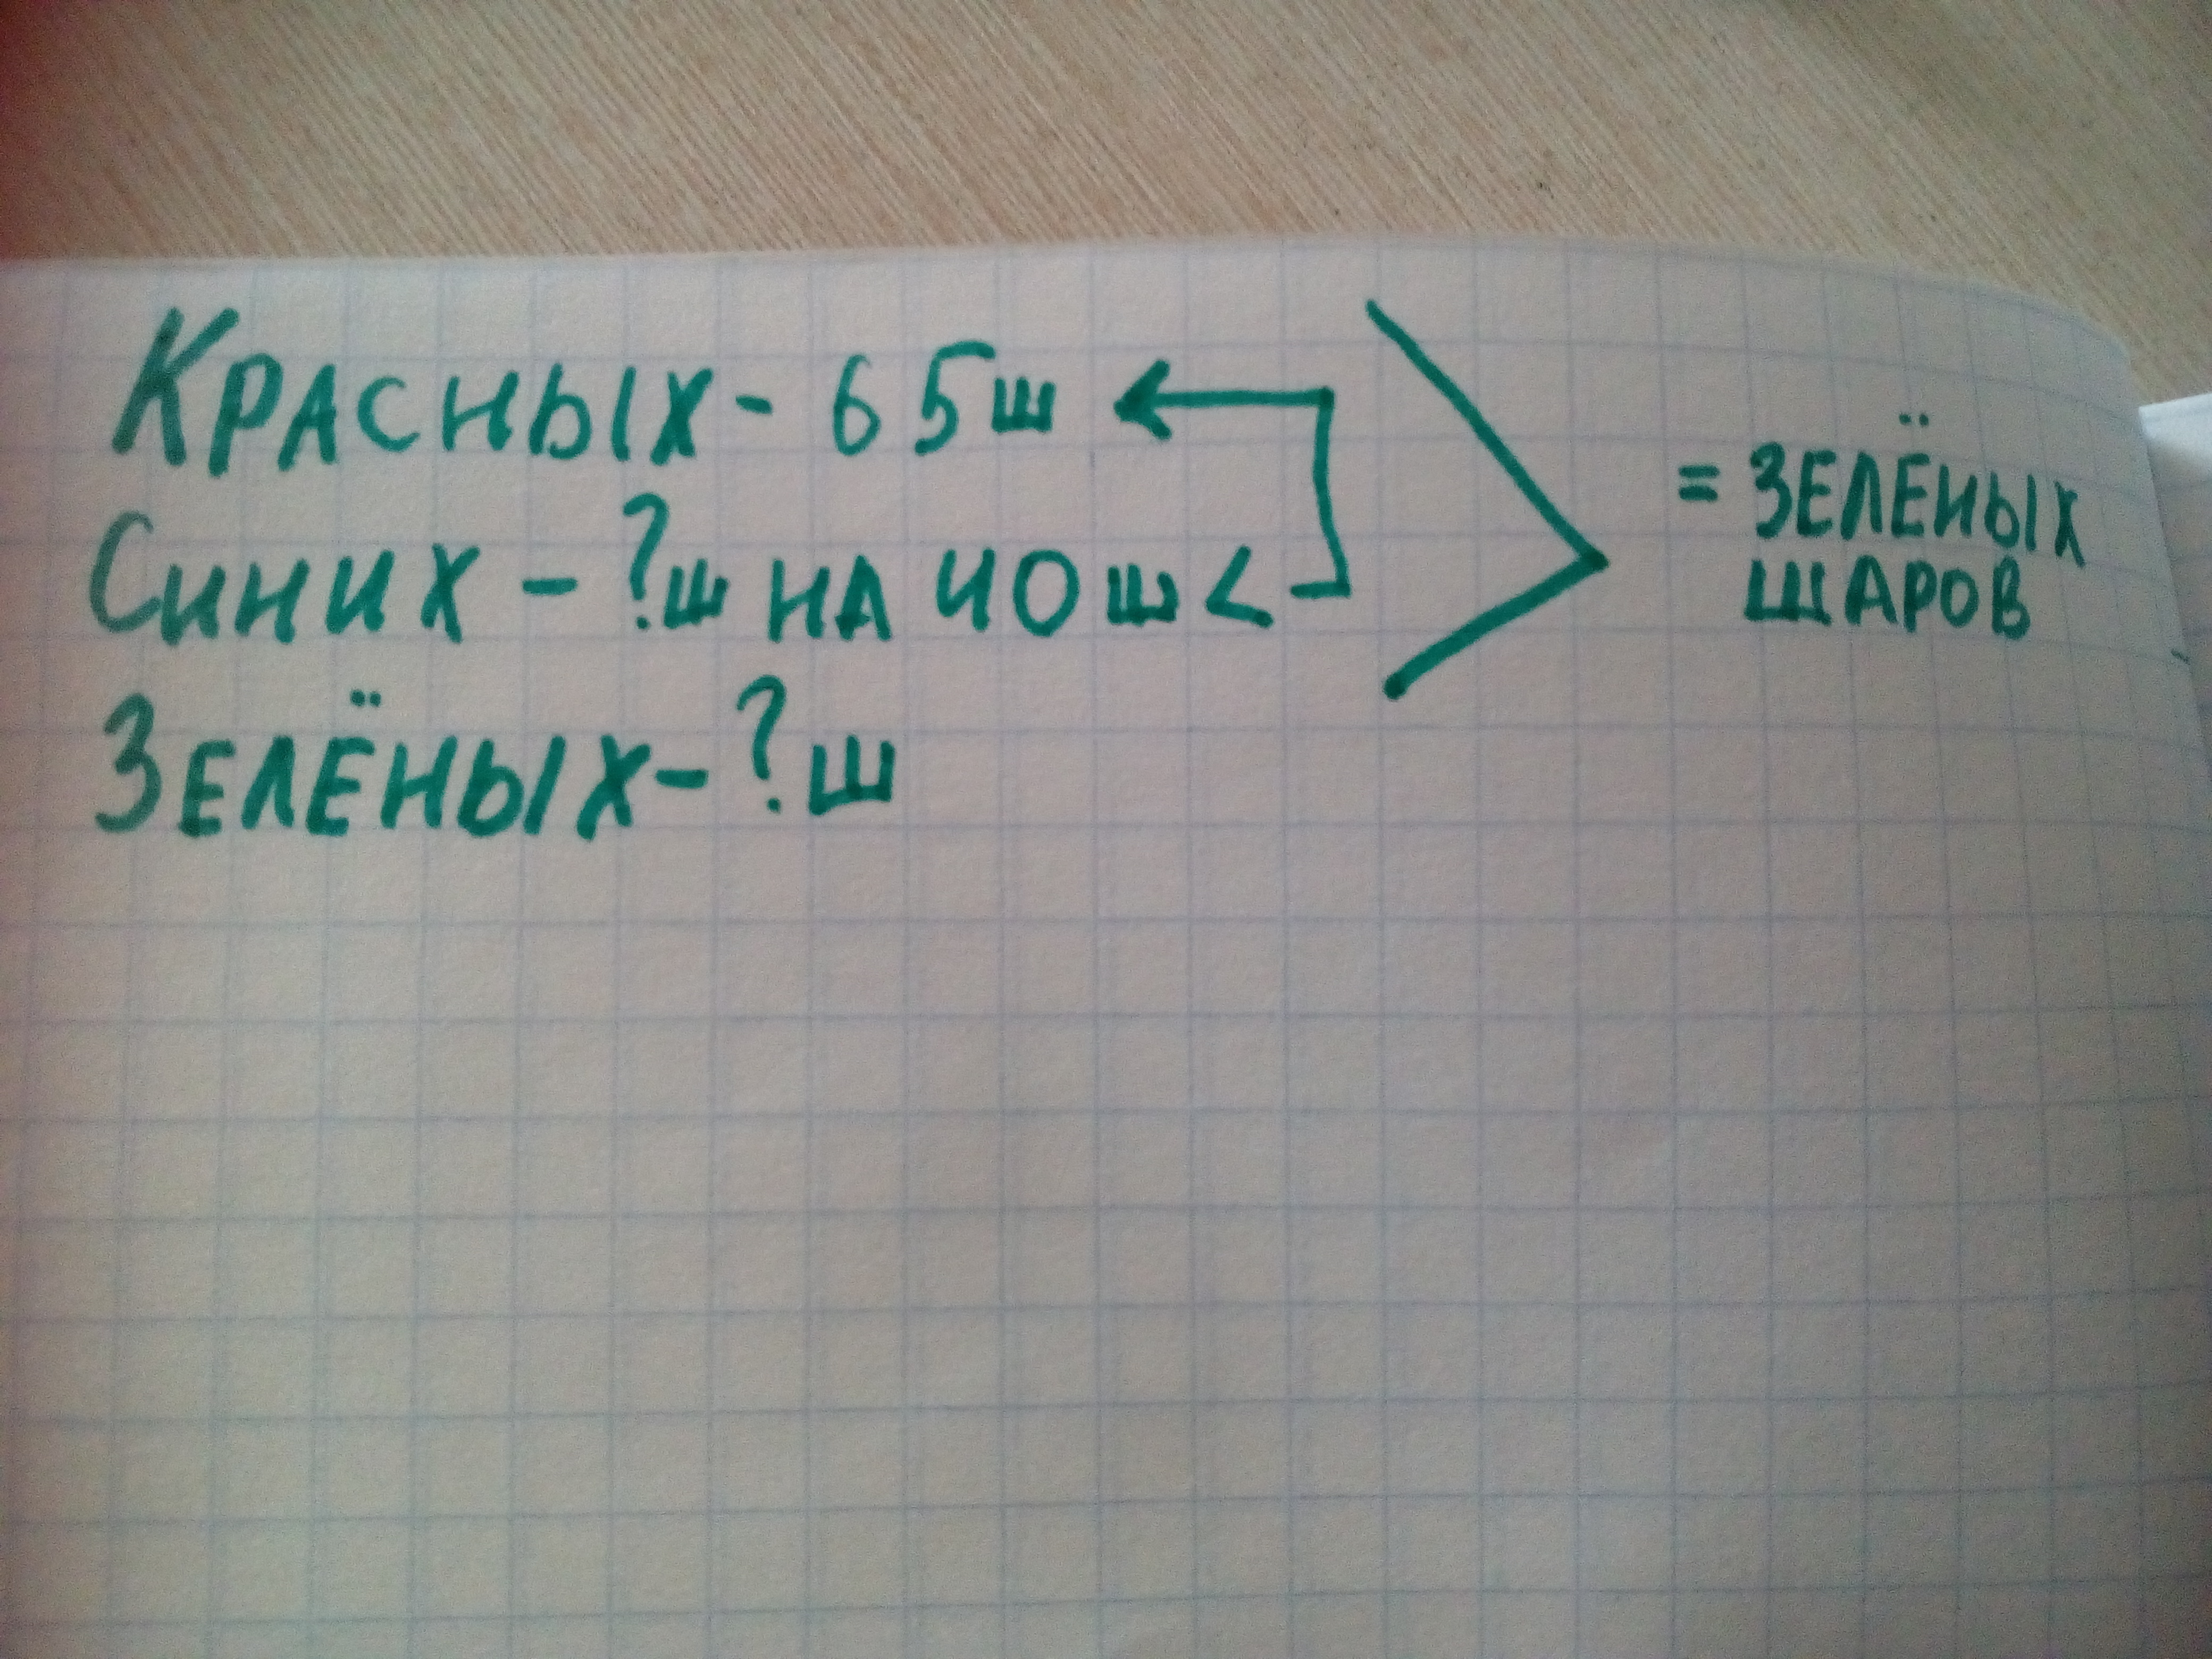 Красных - 65ш
Синих - ?ш на 40ш <
Зелёных - ?ш
= зелёных
шаров